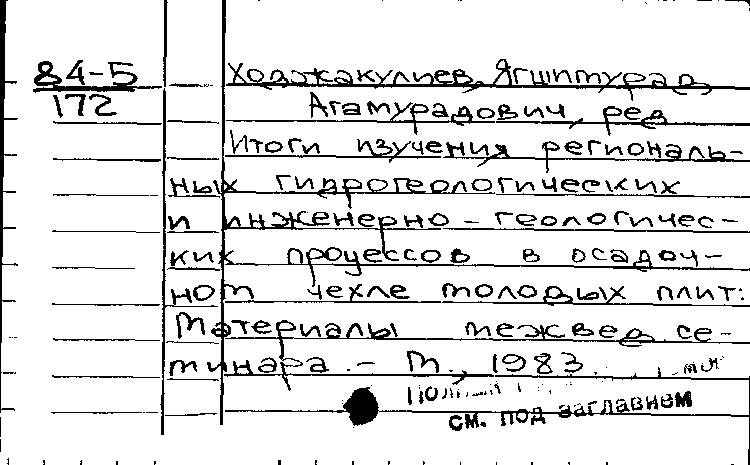 84-5
172
Ходжакулиев, Ягшимурад
Агамурадович, ред
Итоги изучения региональ-
ных гидрогеологических
и инженерно-геологичес-
ких процессов в осадоч-
ном чехле молодых плит:
Материалы межвед. се-
минара. - М., 1983.
см. под заглавием